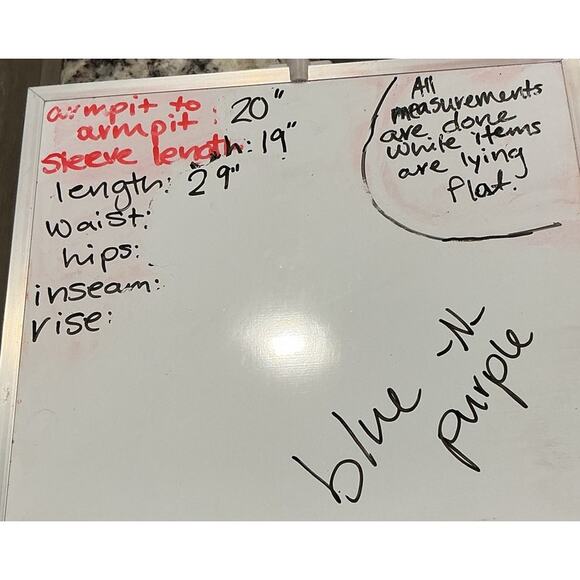 armpit to
armpit: 20"
sleeve length: 19"
length: 29"
waist:
hips:
inseam:
rise:
All
measurements
are done
while items
are lying
flat.
blue -N-
purple